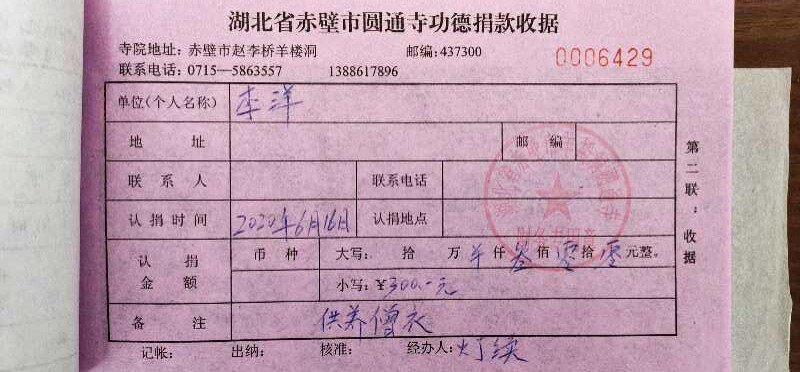 湖北省赤壁市圆通寺功德捐款收据
寺院地址: 赤壁市赵李桥羊楼洞 邮编: 437300
联系电话: 0715—5863557 1388617896 0006429
单位(个人名称) 李洋
地 址 邮 编
联 系 人 联系电话
认捐时间 2020年6月16日 认捐地点
认 捐 金 额 币 种 大写: 拾 万 仟 叁 佰 零 拾 零 元整。
小写: ¥300.-元
备 注 供养僧衣
记帐: 出纳: 核准: 经办人:
第二联:收据